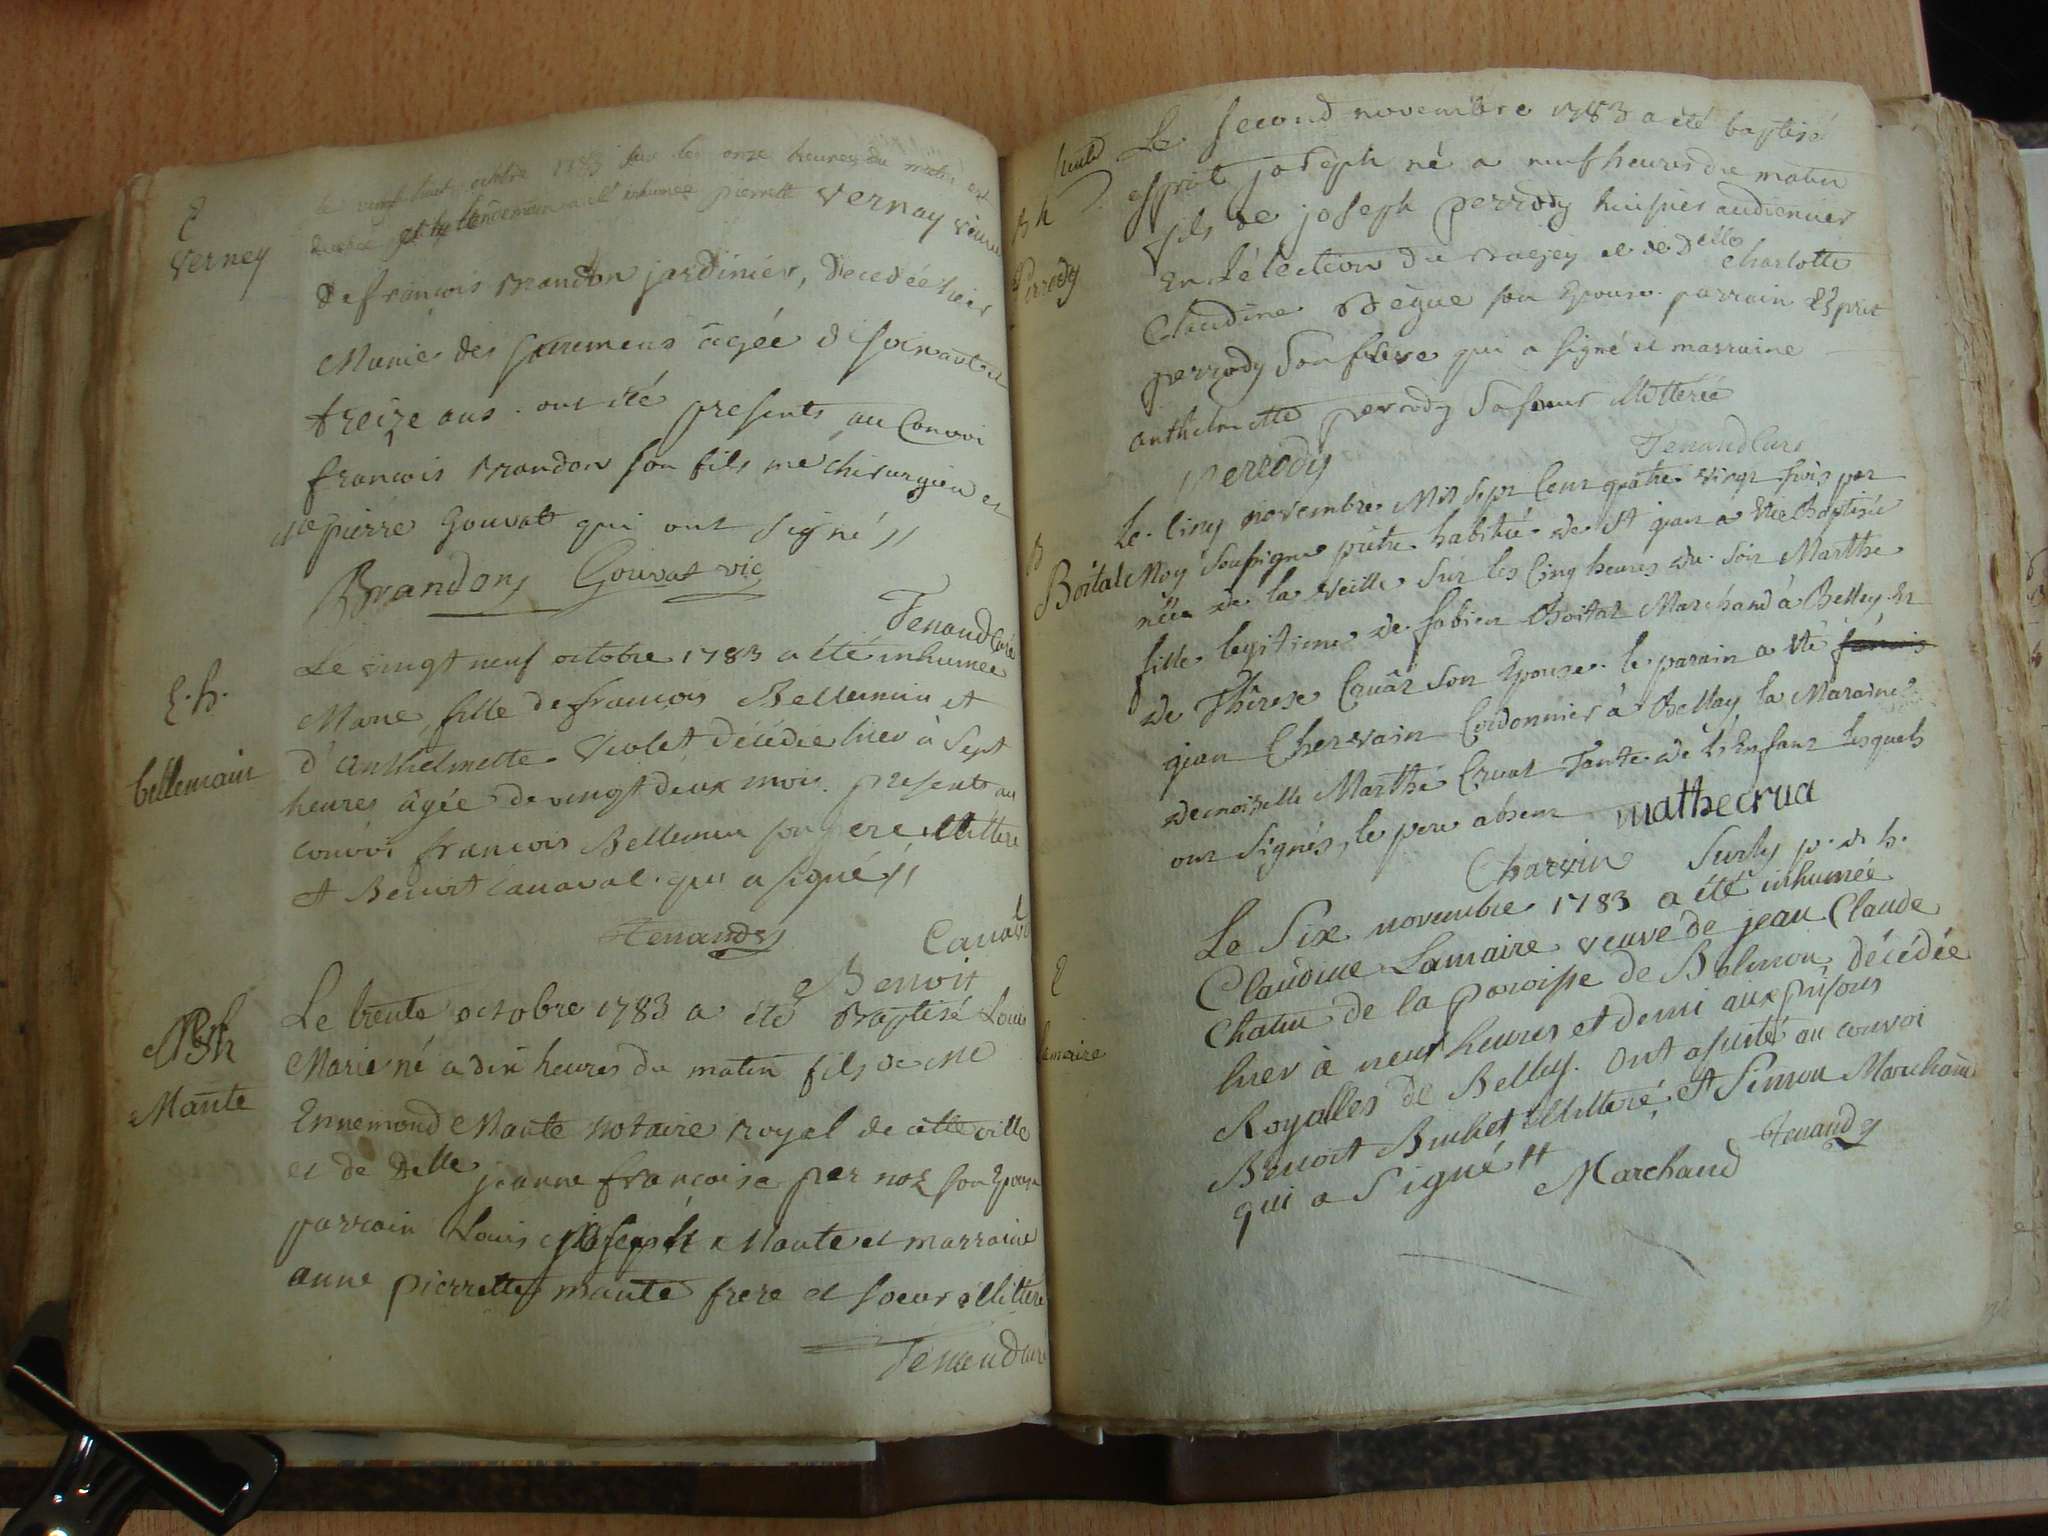 E
Verney
le vingt huit octobre 1783 sur les onze heures du matin est
decedée et le lendemain a été inhumée pierrette Vernay veuve
de françois Brandon jardinier, decedée hier
Munie des sacremens agée de soixante et
treize ans. ont été presents au Convoi
françois Brandon son fils me chirurgien et
pierre Gouvat qui ont signé //
Brandon Gouvat vic
Tenand Curé
E. h.
bellemain
Le vingt neuf octobre 1783 a été inhumee
Marie fille de françois Bellemin et
d'Anthelmette Violet décédée hier à sept
heures âgée de vingt deux mois. presents au
convoi françois Bellemin son pere illitteré
et Benoit Canaval qui a signé //
Tenand
Canaval
Benoit
Bh
Mante
Le trente octobre 1783 a été Baptisé Louis
Marie né a dix heures du matin fils de Me
Ennemond Mante Notaire Royal de cette ville
et de Delle jeanne françoise per son Epouse
parrain Louis joseph Mante et marraine
anne pierrette mante frere et soeur illitteré
Tenand Curé
Bh
perrody
Le second novembre 1783 a été baptisé
esprit joseph né a neuf heures du matin
fils de joseph perrody huissier audiencier
En l'élection du Bugey et de Delle Charlotte
Claudine Bègue son Epouse. parrain Esprit
perrody Son frere qui a signé et marraine
anthelmette perrody Sa soeur illitterée
perrody
Tenand Curé
B
Boital
Le Cinq novembre Mil Sept Cent quatre vingt trois par
Moy Soussigné prêtre habitué de St jean a Eté Baptisée
née de la veille Sur les Cinq heures du Soir Marthe
fille legitime de fabien Boital Marchand à Belley Et
de Thérese Cruat Son Epouse. le parain a Eté
jean Chervain Cordonnier à Belley la Maraine
demoiselle Marthe Cruat Tante de l'Enfant lesquels
ont Signés, le pere absent mathecrua
Charvin Surly p. d h.
E
Lamaire
Le Six novembre 1783 a été inhumée
Claudine Lamaire veuve de jean Claude
Chatin de la paroisse de Belmon, décédée
hier à neuf heures et demi aux prisons
Royalles de Belley. Ont assisté au convoi
Benoit Bruhet illitteré, et Simon Marchand
qui a Signé //
Marchand Tenand